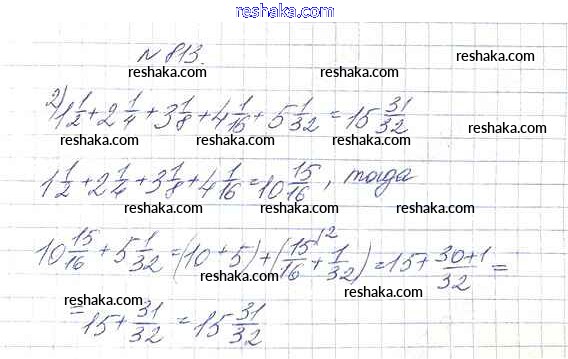 reshaka.com
№ 813.
reshaka.com reshaka.com
2) 1 1/2 + 2 1/4 + 3 1/8 + 4 1/16 + 5 1/32 = 15 31/32
reshaka.com reshaka.com reshaka.com
1 1/2 + 2 1/4 + 3 1/8 + 4 1/16 = 10 15/16, тогда
reshaka.com reshaka.com
10 15/16 + 5 1/32 = (10 + 5) + (15/16 \2 + 1/32) = 15 + 30+1/32 =
reshaka.com reshaka.com
= 15 + 31/32 = 15 31/32
reshaka.com reshaka.com
reshaka.com